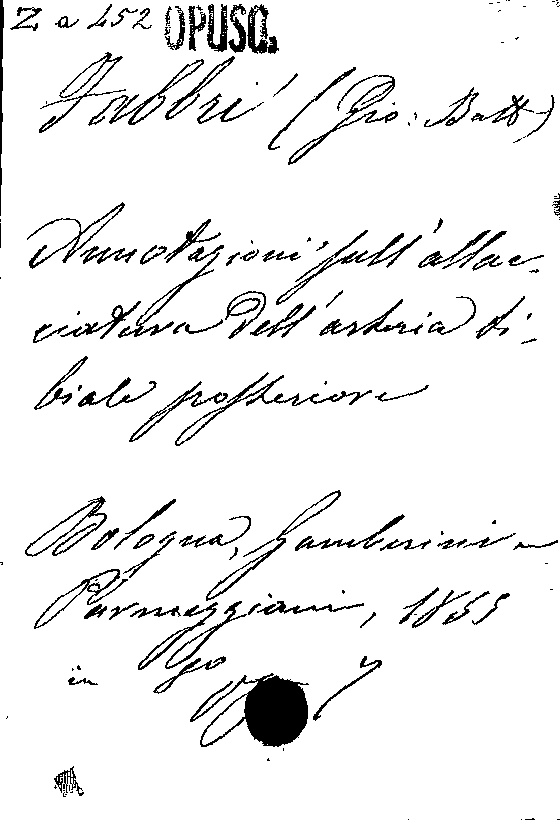 Z a 452 OPUSC.
Fabbri (Gio: Batt)
Annotazioni sull'allac-
ciatura dell'arteria ti-
biale posteriore
Bologna, Gamberini e
Parmeggiani, 1855
in 8°